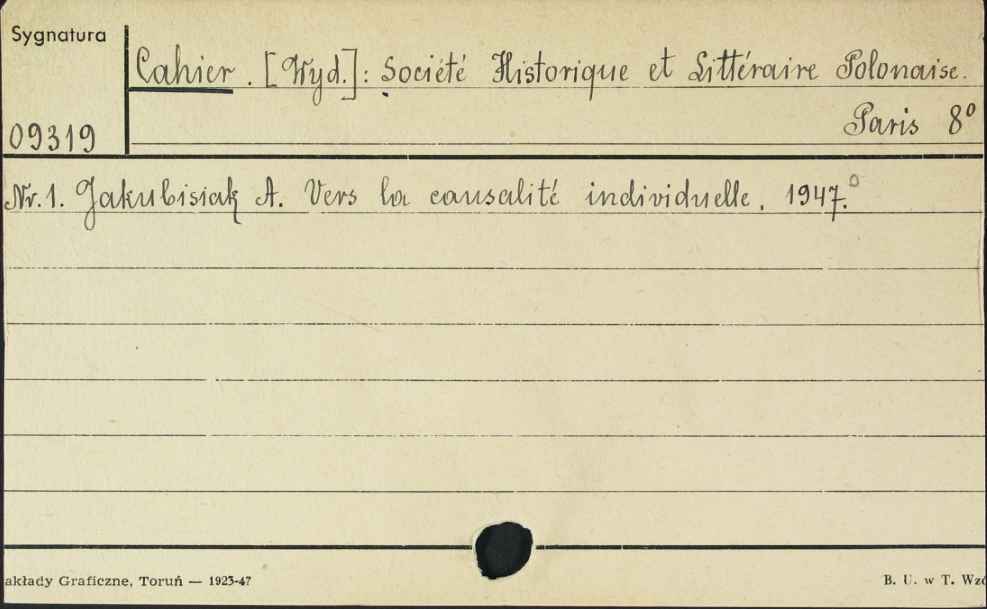 Sygnatura
Cahier. [Wyd.]: Société Historique et Littéraire Polonaise.
Paris 8°
09319
Nr. 1. Jakubisiak A. Vers la causalité individuelle. 1947.°
akłady Graficzne, Toruń — 1923-47
B. U. w T. Wzó